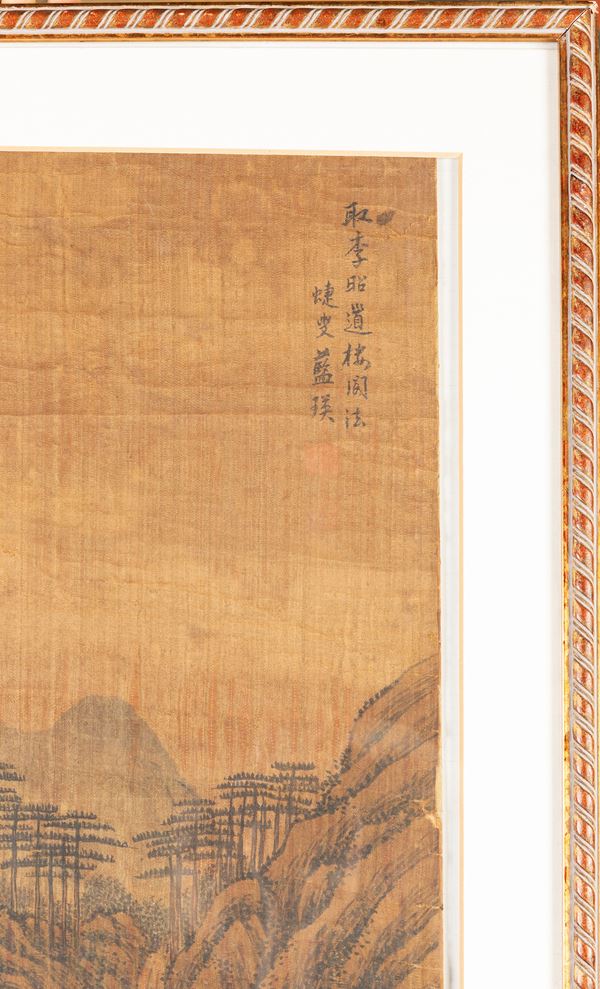 取李昭道樓閣法
蜨叟藍瑛